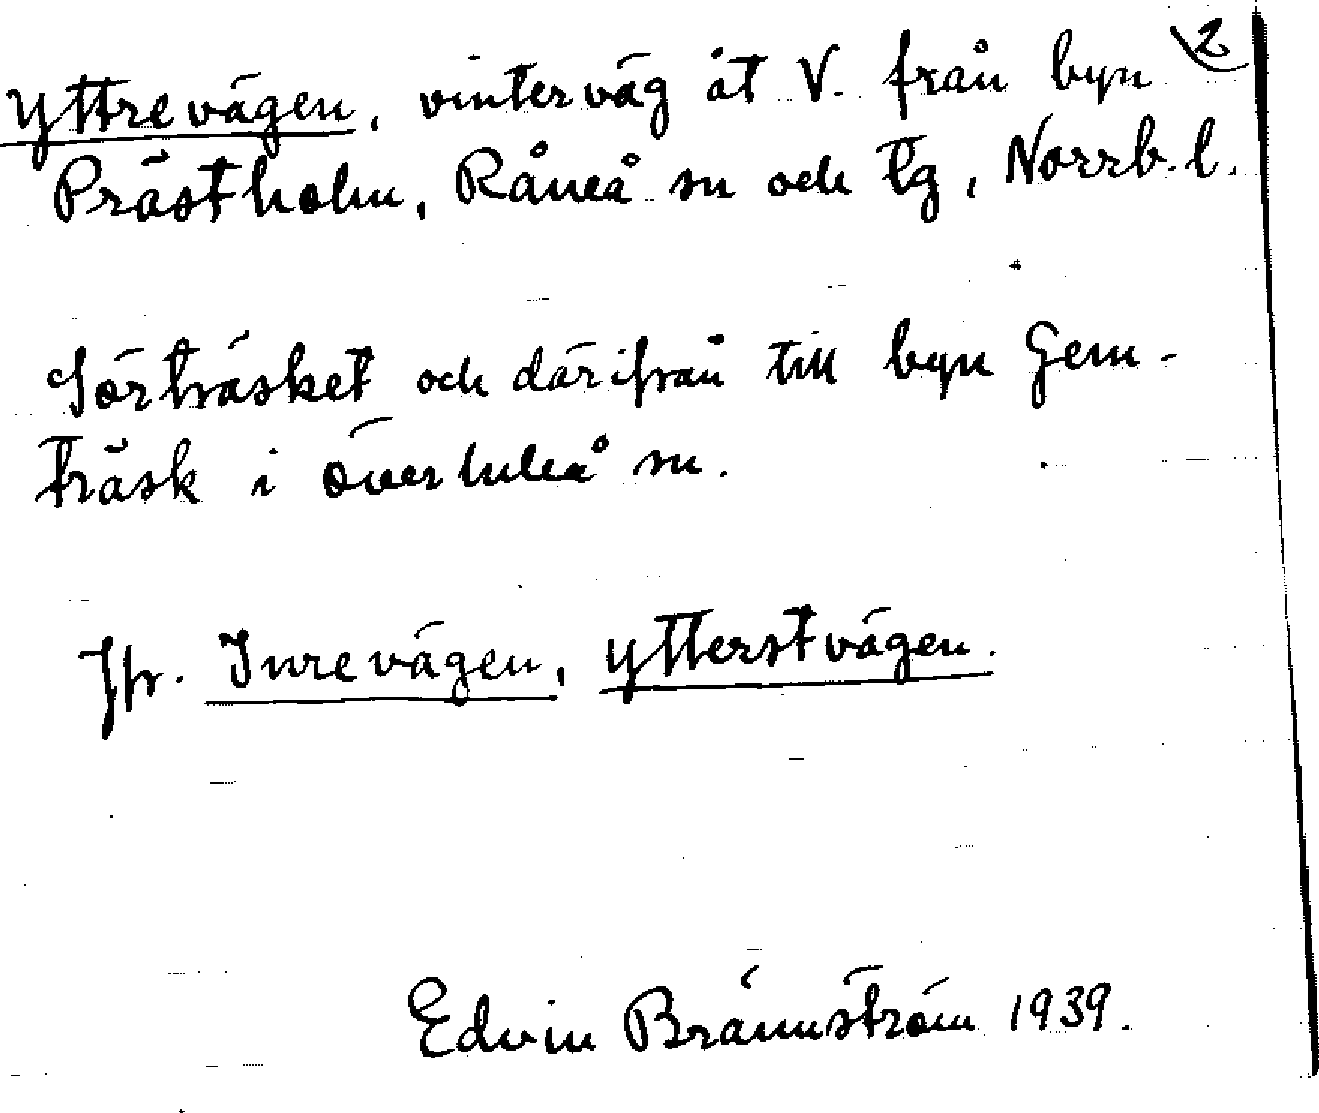 2
Yttrevägen, vinterväg åt V. från byn
Prästholm, Råneå sn och tg, Norrb. l.
Sörträsket och därifrån till byn Gem-
träsk i överluleå sn.
Jfr. Inrevägen, Ytterstvägen.
Edvin Brännström 1939.